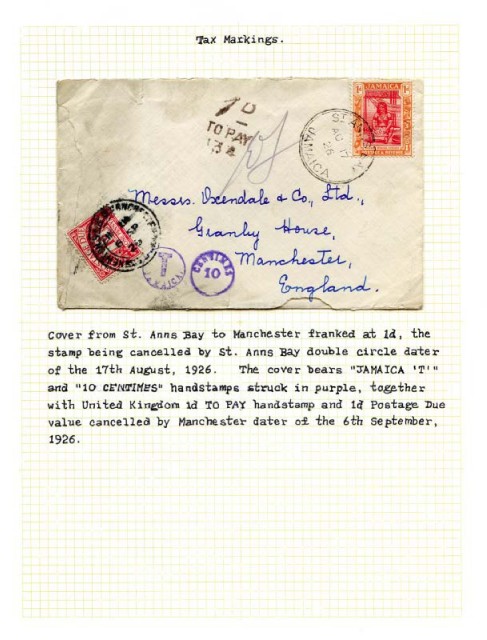 Tax Markings.
1D
TO PAY
134
JAMAICA
1d
ST. ANNS BAY
AU 17
26
JAMAICA
Messrs. Oxendale & Co, Ltd.,
Granby House,
Manchester,
England.
T
JAMAICA
CENTIMES
10
Cover from St. Anns Bay to Manchester franked at 1d, the
stamp being cancelled by St. Anns Bay double circle dater
of the 17th August, 1926.  The cover bears "JAMAICA 'T'"
and "10 CENTIMES" handstamps struck in purple, together
with United Kingdom 1d TO PAY handstamp and 1d Postage Due
value cancelled by Manchester dater of the 6th September,
1926.